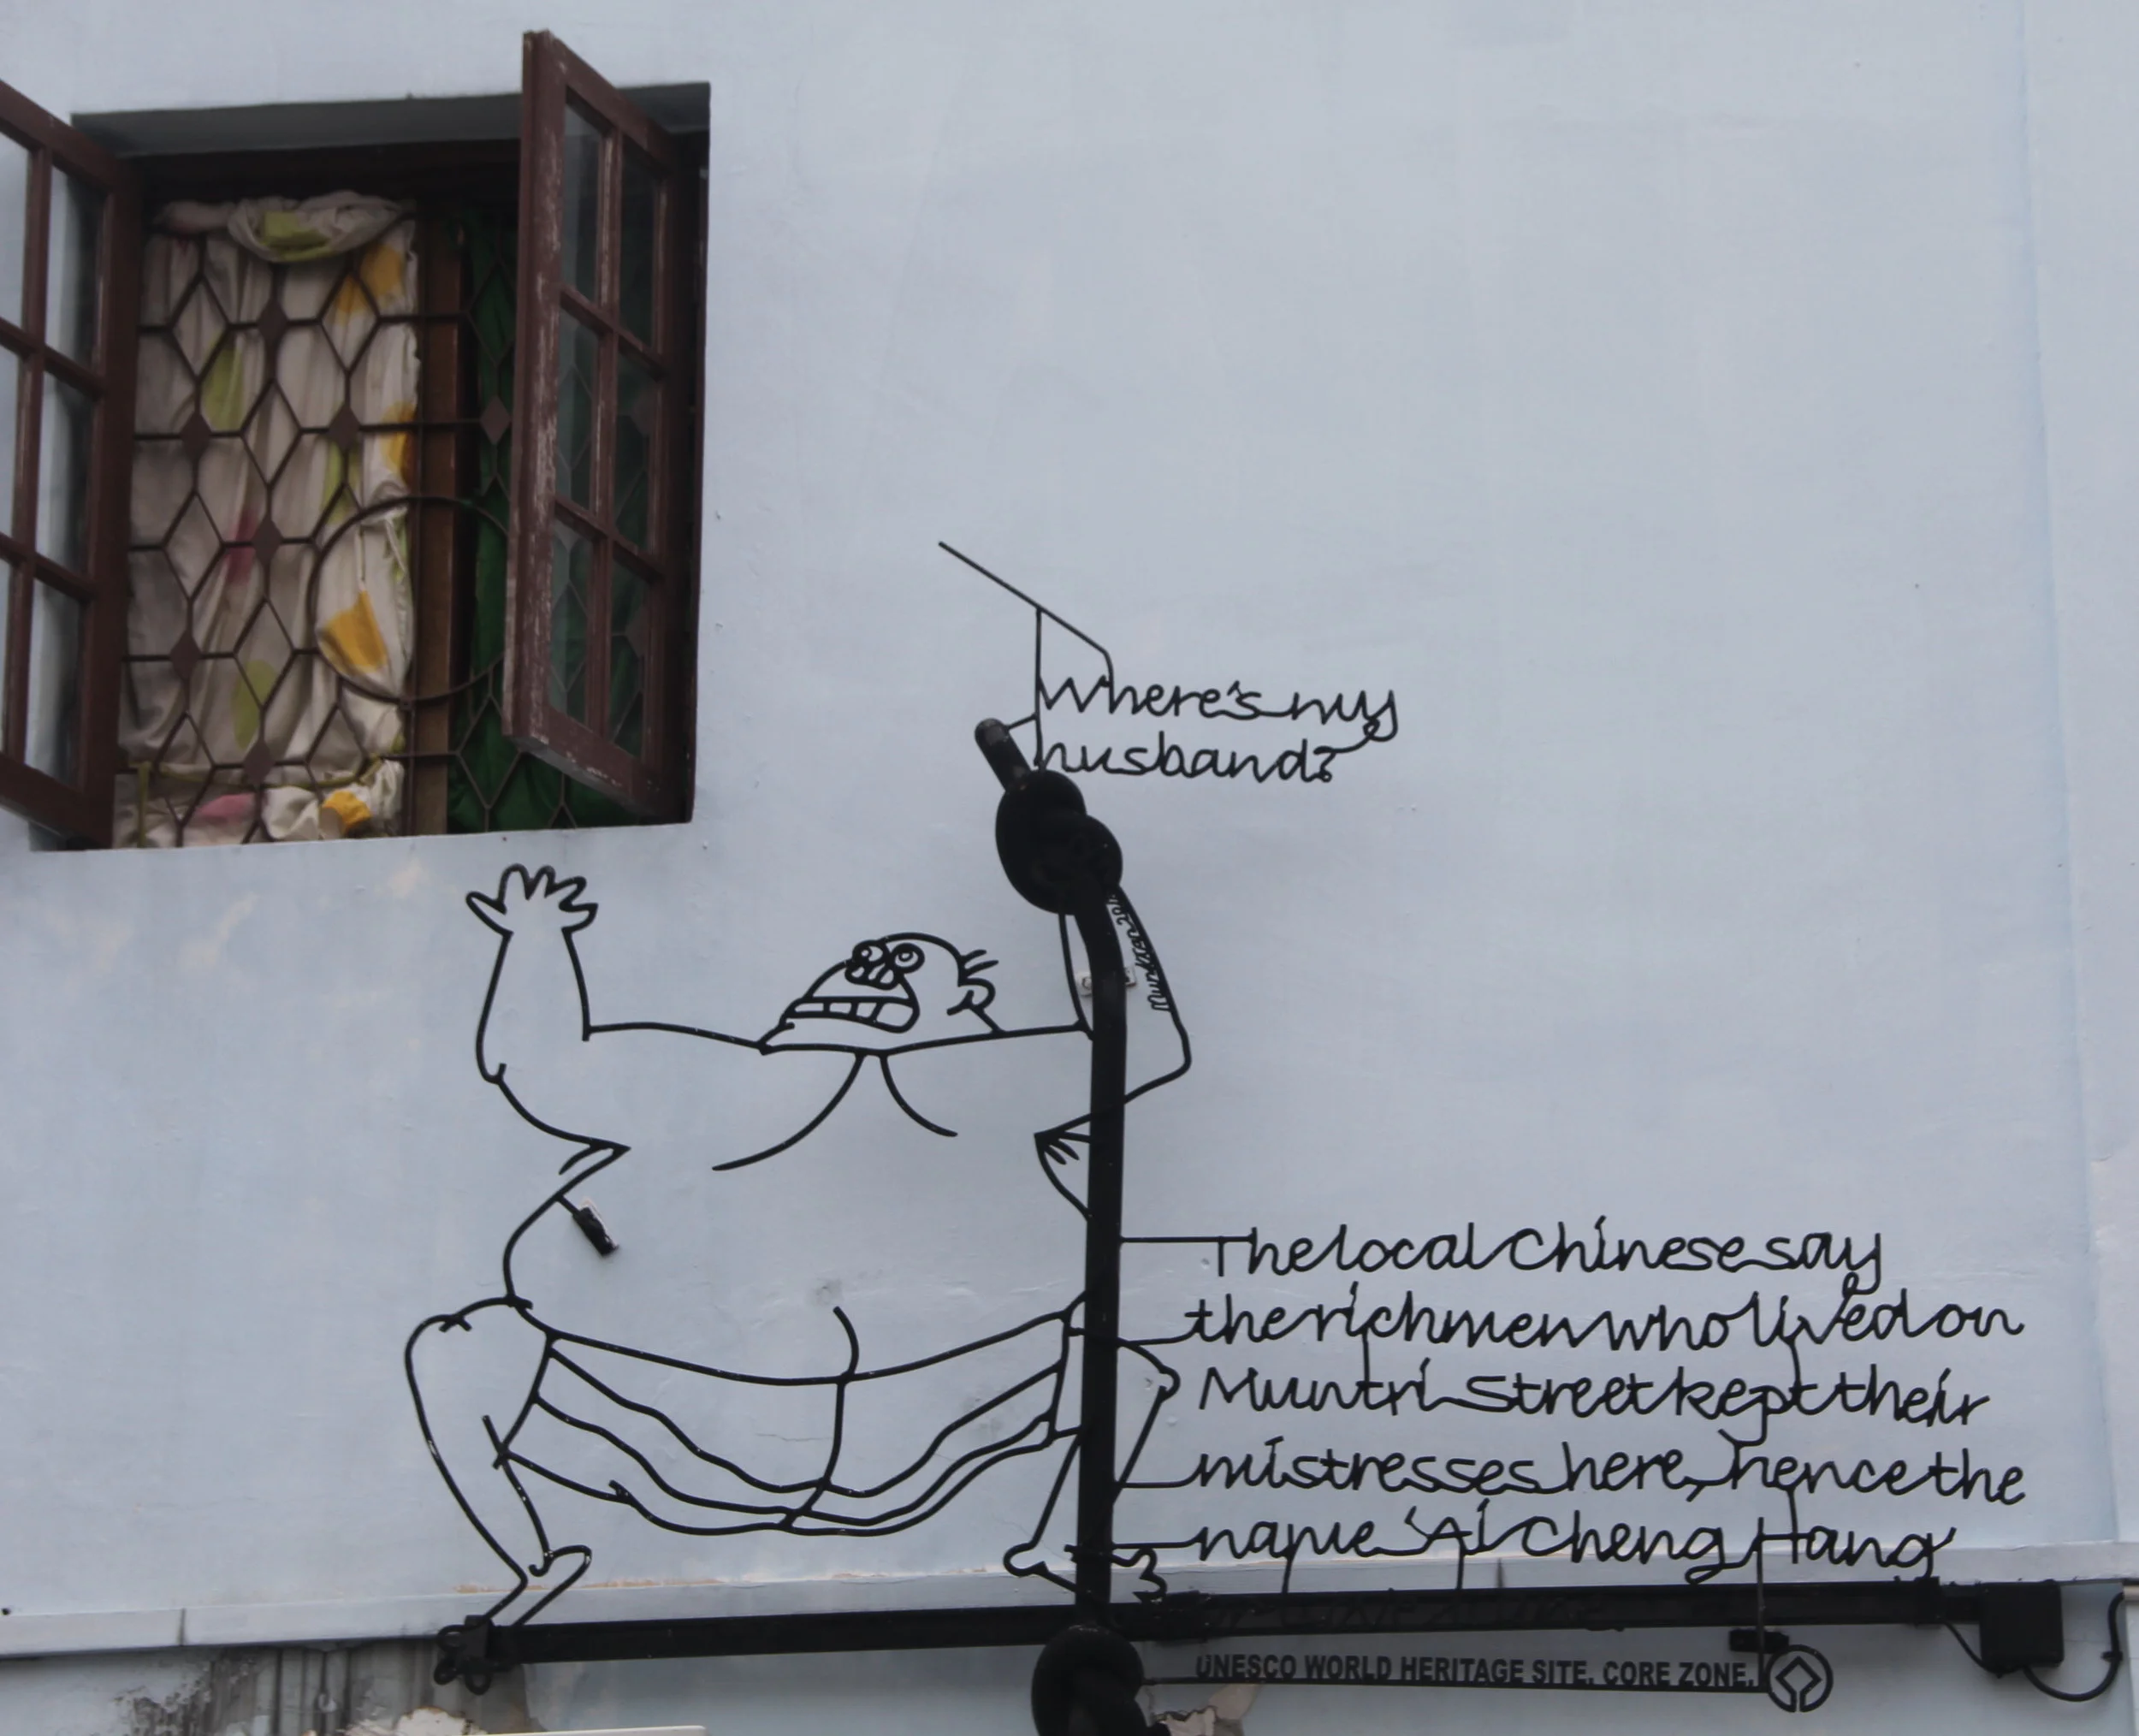 Where's my
husband?
The local Chinese say
the rich men who lived on
Muntri Street kept their
mistresses here, hence the
name 'Ai Cheng Hang'
UNESCO WORLD HERITAGE SITE. CORE ZONE.